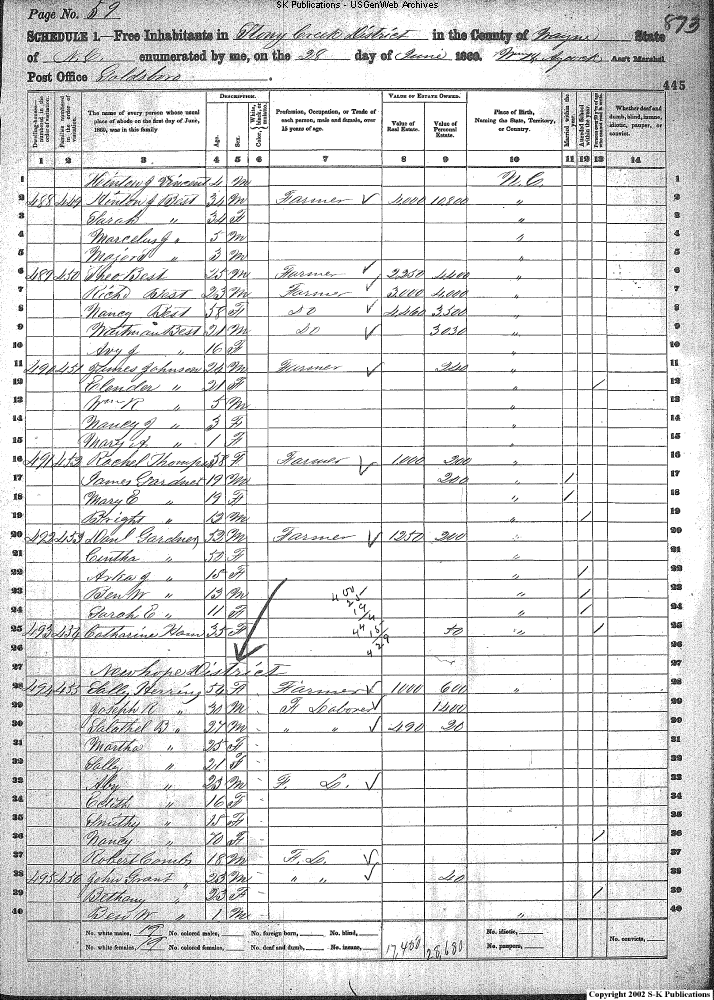 SK Publications - USGenWeb Archives
Page No. 59
873
SCHEDULE 1.—Free Inhabitants in Stony Creek District in the County of Wayne State
of N.C. enumerated by me, on the 28 day of June 1860. Wm H Aycock Ass't Marshal
Post Office Goldsboro.
445
Dwelling-houses numbered in the order of visitation.
Families numbered in the order of visitation.
The name of every person whose usual place of abode on the first day of June, 1860, was in this family
DESCRIPTION.
Age.
Sex.
Color,
Profession, Occupation, or Trade of each person, male and female, over 15 years of age.
VALUE OF ESTATE OWNED.
Value of Real Estate.
Value of Personal Estate.
Place of Birth, Naming the State, Territory, or Country.
Married within the year.
Attended School within the year.
Whether deaf and dumb, blind, insane, idiotic, pauper, or convict.
1 2 3 4 5 6 7 8 9 10 11 12 13 14
1 Hinton J Vincent 4 M N.C. 1
2 488 449 Hinton J Best 34 M Farmer 4000 10800 " 2
3 Sarah " 34 F " 3
4 Marcelus J " 5 M " 4
5 Major " 3 M " 5
6 489 450 Theo Best 25 M Farmer 2250 4400 " 6
7 Richd Best 23 M Farmer 3,000 4,000 " 7
8 Nancy Best 58 F Do 4,460 3,500 " 8
9 Best 21 M Do 3030 " 9
10 Avy J " 16 F " 10
11 490 451 James Johnson 24 M Farmer 240 " 11
12 Elender " 21 F " / 12
13 Wm R " 5 M " 13
14 Nancy J " 3 F " 14
15 Mary A " 1 F " 15
16 491 452 Rachel 58 F Farmer 1,000 200 " 16
17 James Gardner 19 M 200 " / 17
18 Mary E " 19 F " / 18
19 Bright " 13 M " / 19
20 492 453 Gardner 53 M Farmer 1250 200 " 20
21 Cintha " 50 F " 21
22 " 15 F " / 22
23 Ben W " 13 M " / 23
24 Sarah E " 11 F " / 24
25 493 454 Catharine Ham 35 F 50 " / 25
26 26
27 Newhope District 27
28 494 455 Sally Herring 56 F Farmer 1000 600 " 28
29 Joseph R " 30 M F Laborer 1400 29
30 Salathel B " 27 M " " 490 20 30
31 Martha " 25 F 31
32 Sally " 21 F 32
33 Aby " 23 M F. L. 33
34 Edith " 16 F 34
35 Smithy " 15 F 35
36 Nancy " 70 F / 36
37 Robert Combs 18 M F. L. 37
38 495 456 John Grant 23 M " " 40 38
39 Bethany " 23 F / 39
40 Ben W " 1 M " 40
No. white males, 19 No. colored males, No. foreign born, No. blind, No. idiotic,
No. white females, 19 No. colored females, No. deaf and dumb, No. insane, 17,450 28,680 No. paupers, No. convicts,
Copyright 2002 S-K Publications